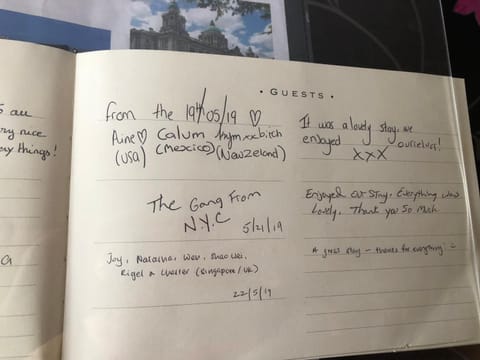 ry nice
things!
• GUESTS •
from the 19th/05/19 ♡
Aine♡ Calum
(USA) (Mexico) (NewZeland)
It was a lovely stay, we
enjoyed ourselves!
XXX
The Gang From
N.Y.C
5/21/19
Enjoyed our stay. Everything was
lovely. Thank you so much
Joy, Wei, Shao Wei,
Rigel & (Singapore/UK)
22/5/19
A great stay - thanks for everything! :)